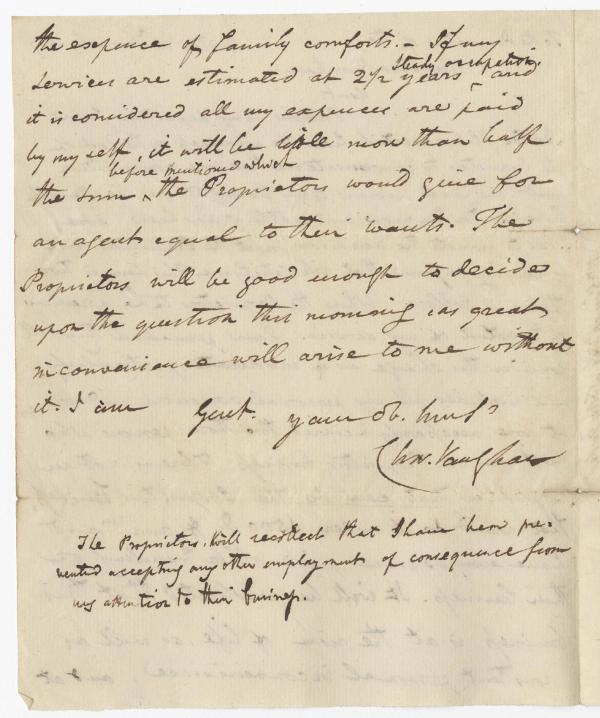 the expence of family comforts. - If my
services are estimated at 2 1/2 years steady occupation, and
it is considered all my expences are paid
by my self, it will be little more than half
the sum before mentioned which the Proprietors would give for
an agent equal to their wants. The
Proprietors will be good enough to decide
upon the question this morning as great
inconvenience will arise to me without
it. I am Gent. your ob. hum Sr
Chas. Vaughan
The Proprietors will recollect that I have been pre-
vented accepting any other employment of consequence from
my attention to their business.